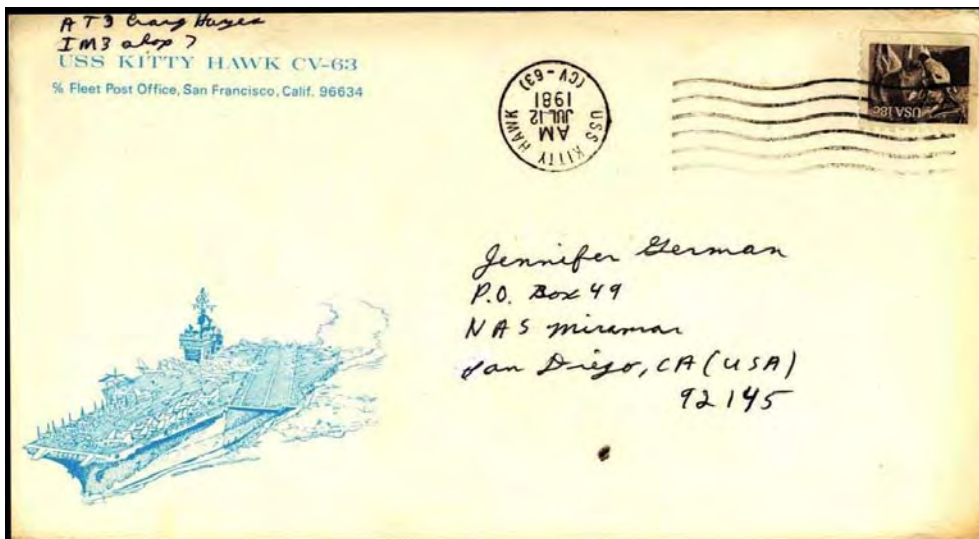 AT3 Craig Hayes
IM3 shop 7
USS KITTY HAWK CV-63
℅ Fleet Post Office, San Francisco, Calif. 96634
USS KITTY HAWK
(CV-63)
AM
JUL 12
1981
USA 18c
Jennifer German
P.O. Box 49
NAS Miramar
San Diego, CA (USA)
92145